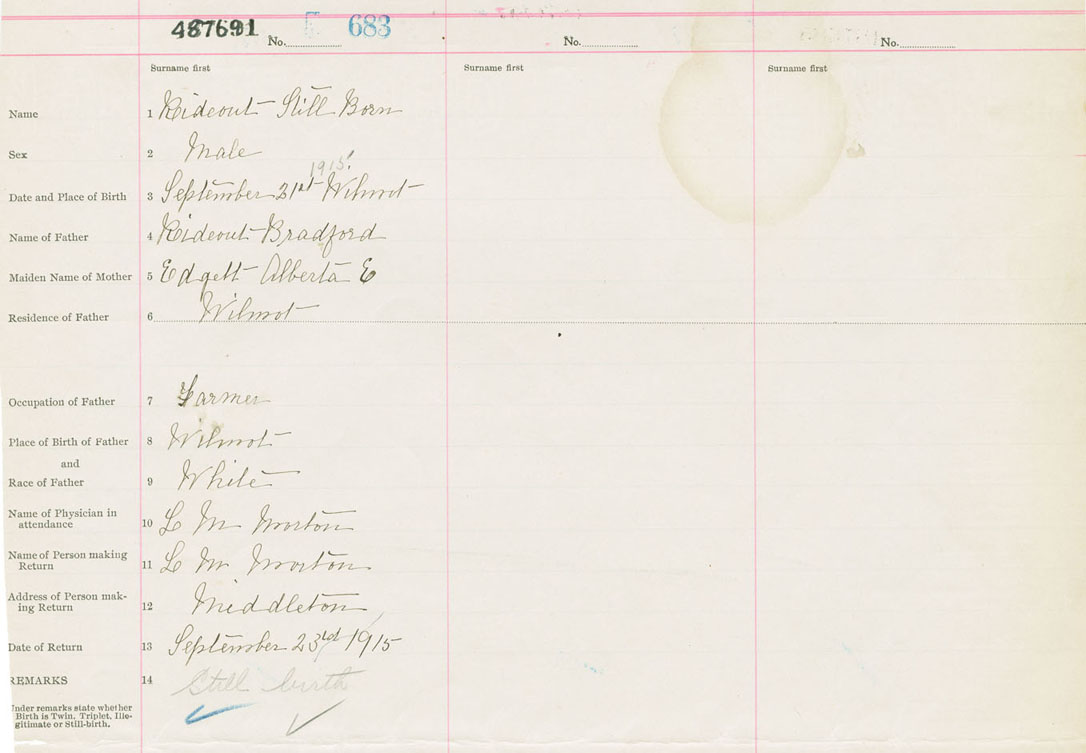 487691 No. 683 No. No.
Surname first Surname first Surname first
Name 1 Rideout Still Born
Sex 2 Male
1915.
Date and Place of Birth 3 September 21st Wilmot
Name of Father 4 Rideout Bradford
Maiden Name of Mother 5 Edgett Alberta E
Residence of Father 6 Wilmot
Occupation of Father 7 Farmer
Place of Birth of Father 8 Wilmot
and
Race of Father 9 White
Name of Physician in
attendance 10 L M Morton
Name of Person making
Return 11 L M Morton
Address of Person mak-
ing Return 12 Middleton
Date of Return 13 September 23rd 1915
REMARKS 14 Still birth
Under remarks state whether
Birth is Twin, Triplet, Ille-
gitimate or Still-birth.